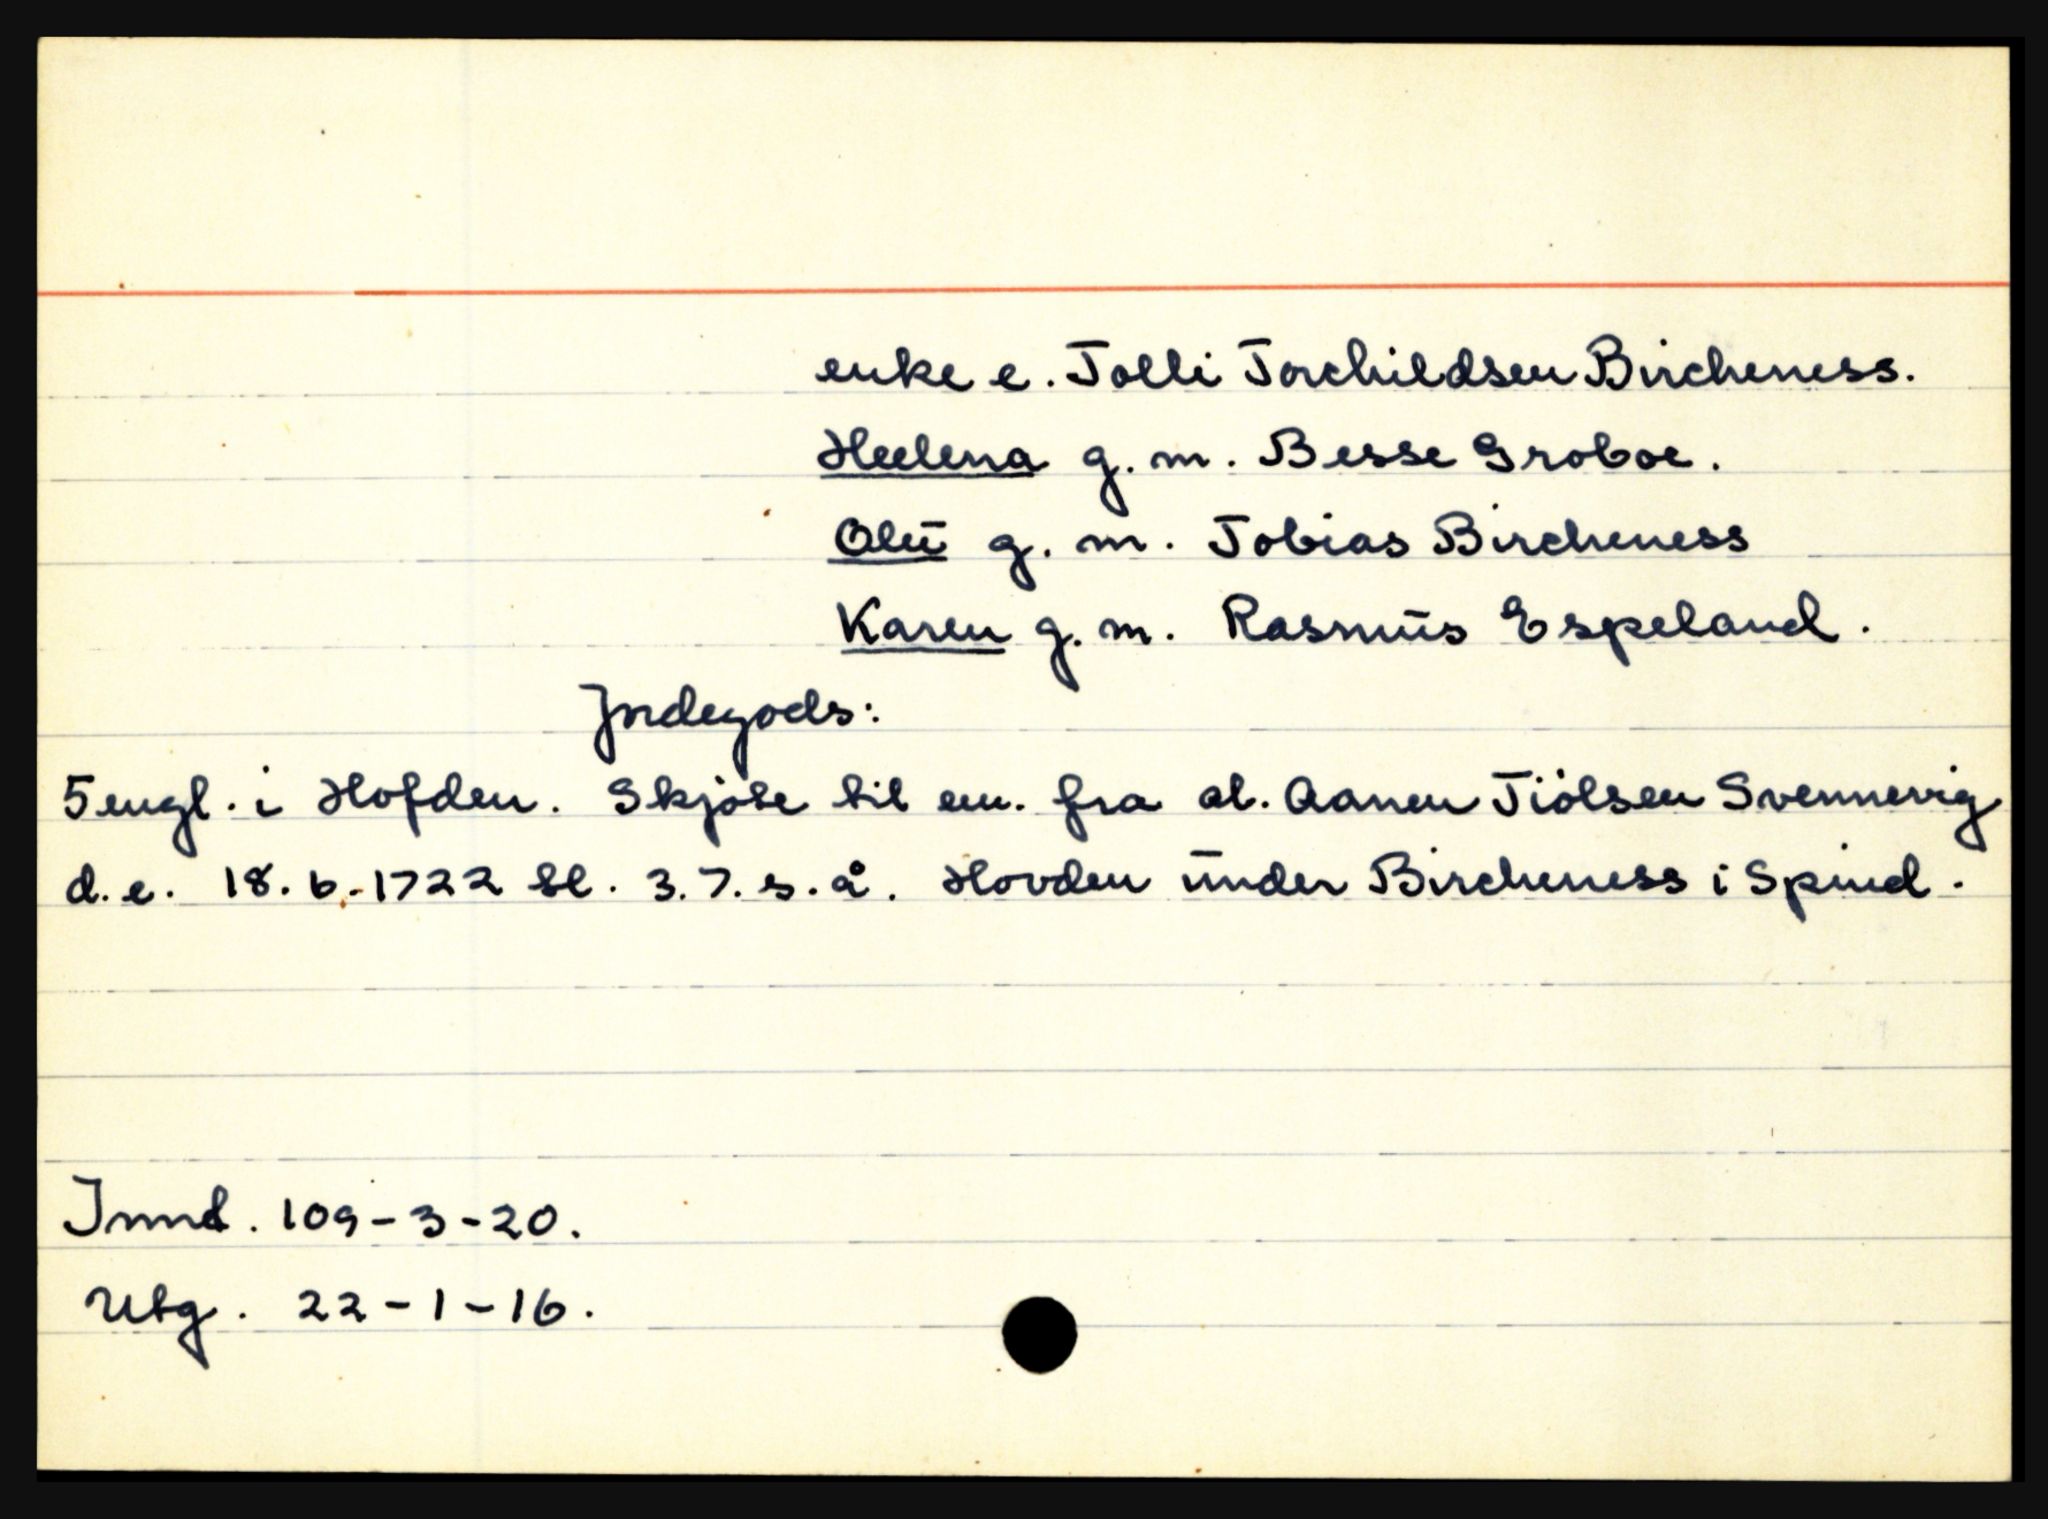 enke e. Tolli Torchildsen Bircheness.
Heelena g. m. Besse Groboe.
Olu g. m. Tobias Bircheness
Karen g. m. Rasmus Espeland.
Jordegods:
5 engl. i Hofden. Skjøte til em. fra al. Aanen Tiølsen Svennevig
d. e. 18. 6. 1722 tl. 3. 7. s. å. Hovden under Bircheness i Spind.
Innd. 109 - 3 - 20.
Utg. 22 - 1 - 16.